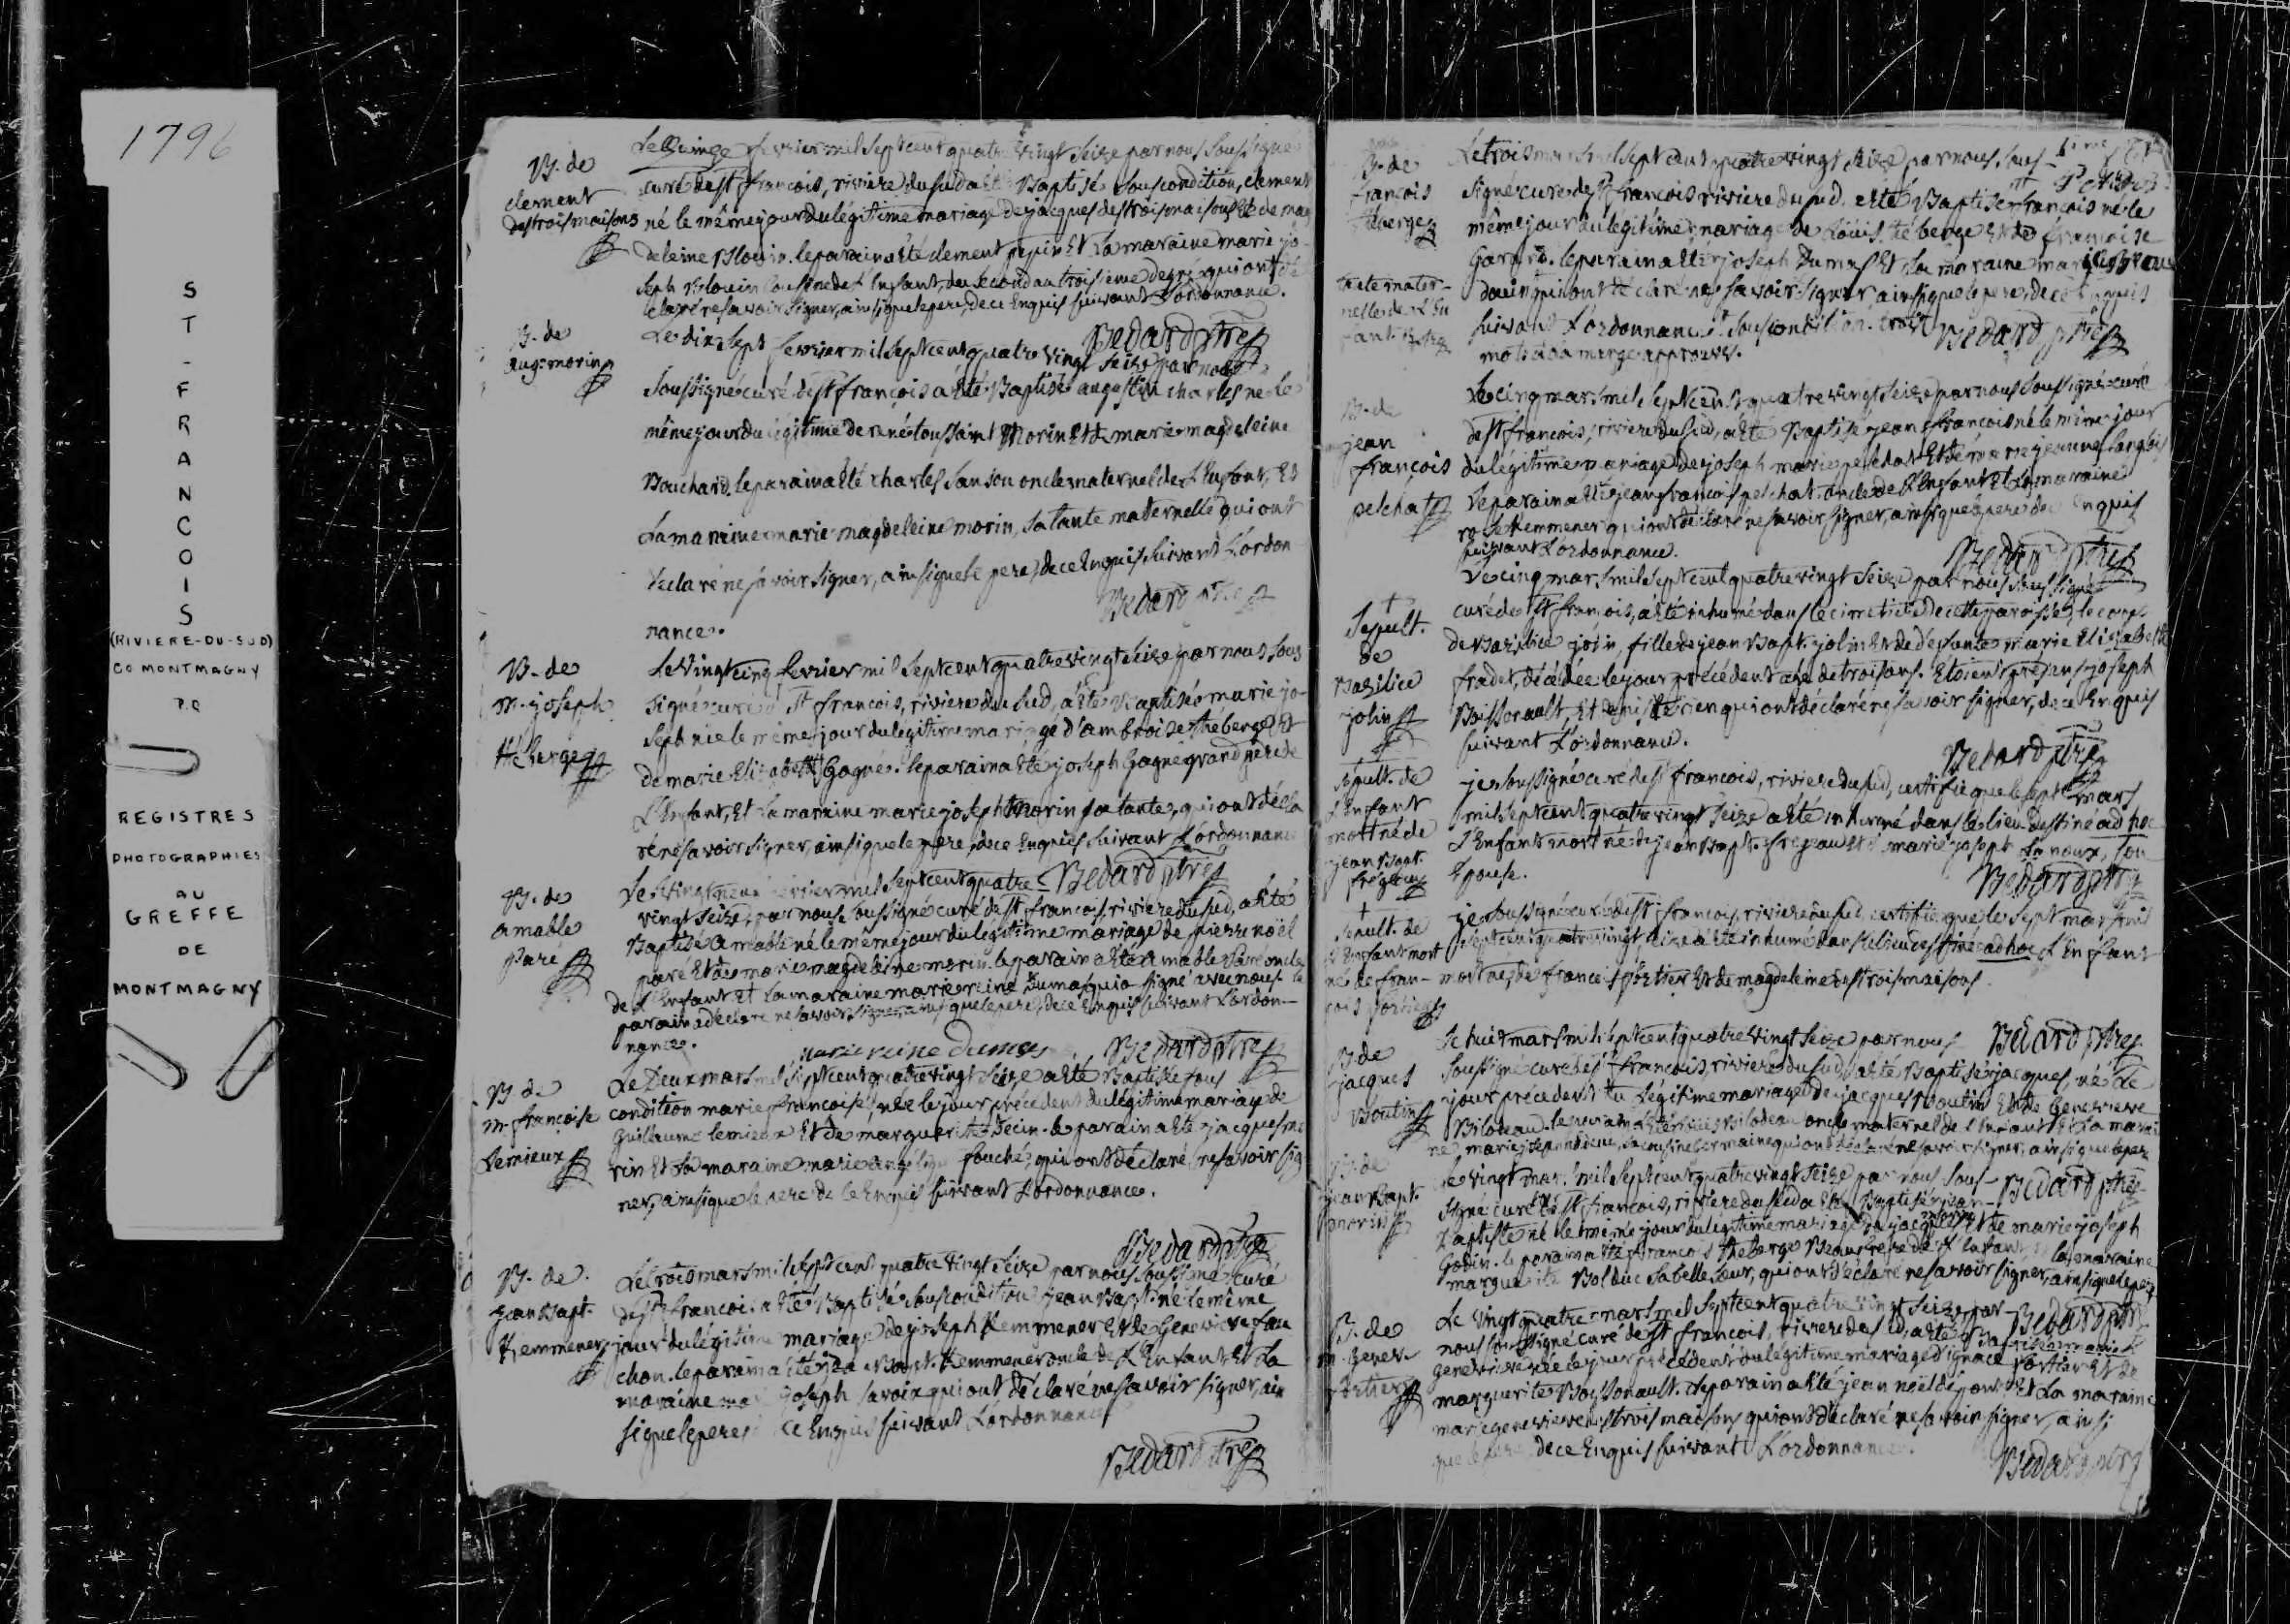 1796
ST-FRANCOIS
(RIVIERE-DU-SUD)
CO MONTMAGNY
P.Q
REGISTRES
PHOTOGRAPHIES
AU
GREFFE
DE
MONTMAGNY
B. de
clement
destroismaisons
Le Quinze fevrier mil sept cent quatre vingt seize par nous soussigné
curé de st françois, riviere du sud a été Baptisé sous condition, clement
né le même jour du légitime mariage de jacques destroismaisons Et de mag
deleine Blouin. le parain a été clement pepin Et la maraine marie jo-
seph Blouin cousine de l'Enfant, du second au troisieme degré, qui ont dé
claré ne savoir signer, ainsi que le pere, de ce Enquis suivant L'ordonnance.
Bedard ptre
B. de
aug: morin
Le dix sept fevrier mil sept cent quatre vingt seize par nous
soussigné curé de st françois a été Baptisé augustin charles né le
même jour du légitime de rené toussaint Morin Et de marie magdeleine
Bouchard. le parain a été charles oncle maternel de L'Enfant, Et
La maraine marie magdeleine morin, sa tante maternelle qui ont
declaré ne savoir signer, ainsi que le pere, de ce Enquis suivant L'ordon
nance.
Bedard ptre
B. de
m. joseph
theberge
Le Vingt cinq fevrier mil sept cent quatre vingt seize par nous sous
signé curé d st françois, riviere du sud, a été Baptisée marie jo-
seph née le même jour du legitime mariage d'ambroise theberge Et
de marie Elizabeth Gagné. le parain a été joseph Gagné grand pere de
L'Enfant, Et la maraine marie joseph Morin sa tante, qui ont décla
ré ne savoir signer, ainsi que le pere, de ce Enquis suivant L'ordonnance
Bedard ptre
B. de
amable
Paré
Le Vingt neuf fevrier mil sept cent quatre
vingt seize, par nous soussigné curé de st françois, riviere du sud, a été
Baptisé amable né le même jour du légitime mariage de pierre noël
paré Et de marie magdeleine morin. le parain a été amable Paré oncle
de L'Enfant Et la maraine marie reine Dumas qui a signé avec nous le
parain a declaré ne savoir signer, ainsi que le pere, de ce Enquis suivant L'ordon-
nance.
marie reine dumas
Bedard ptre
B. de
m. françoise
Lemieux
Le Deux mars mil sept cent quatre vingt seize a été Baptisée sous
condition marie françoise, née le jour précédent du légitime mariage de
Guillaume lemieux Et de marguerite. le parain a été jacques mo
rin Et la maraine marie angelique fouché, qui ont déclaré ne savoir sig
ner, ainsi que le pere de ce Enquis suivant L'ordonnance.
Bedard ptre
B. de
jean Bapt.
Kemmener
Le trois mars mil sept cent quatre vingt seize par nous soussigné curé
de st françois a été Baptisé sous condition jean Bapt. né le même
jour du légitime mariage de joseph Kemmener Et de Genevieve fau
chon. le parain a été jean Bapt. Kemmener oncle de L'Enfant Et la
maraine marie joseph savoix qui ont déclaré ne savoir signer, ain
si que le pere de ce Enquis suivant L'ordonnance
Bedard ptre
B. de
françois
teberge
Le trois mars mil sept cent quatre vingt seize par nous sous-
signé curé de st françois riviere du sud. a été Baptisé françois né le
même jour du légitime mariage de Louis téberge Et de françoise
le parain a été joseph Dumas Et la maraine
qui ont déclaré ne savoir signer ainsi que le pere, de ce Enquis
suivant L'ordonnance sous condition. trois
mots à la marge approuvés.
Bedard ptre
B. de
jean
françois
pelchat
Le cinq mars mil sept cent quatre vingt seize par nous soussigné curé
de st françois, riviere du sud, a été Baptisé jean françois né le même jour
du légitime mariage de joseph marie pelchat Et de marie jeanne langlois
le parain a été jean françois pelchat oncle de L'Enfant Et la maraine
rose Kemmener qui ont déclaré ne savoir signer, ainsi que le pere de ce Enquis
suivant L'ordonnance.
Bedard ptre
Sepult.
de
Basilice
jolin
Le cinq mars mil sept cent quatre vingt seize par nous soussigné
curé de st françois, a été inhumé dans le cimetiere de cette paroisse, le corps
de Basilice jolin, fille de jean Bapt. jolin Et de défunte marie Elizabeth
fradet, décédée le jour précédent agée de trois ans. Etoient présens joseph
Boissonault, Et qui ont déclaré ne savoir signer, de ce Enquis
suivant L'ordonnance.
Bedard ptre
Sepult. de
L'Enfant
mort né de
jean Bapt.
fregeau
je soussigné curé de st françois, riviere du sud, certifie que le sept mars
mil sept cent quatre vingt seize a été inhumé dans le lieu destiné ad hoc
L'Enfant mort né de jean Bapt. fregeau Et marie joseph Lanoux, son
Epouse.
Bedard ptre
Sepult. de
L'Enfant mort
né de fran-
çois Portier
je soussigné curé de st françois, riviere du sud, certifie que le sept mars mil
sept cent quatre vingt seize a été inhumé dans le lieu destiné ad hoc L'Enfant
mort né, de francois portier Et de magdeleine destroismaisons
Bedard ptre
B. de
jacques
Boutin
Le huit mars mil sept cent quatre vingt seize par nous
soussigné curé de st françois, riviere du sud, a été Baptisé jacques, né le
jour précédent du légitime mariage de jacques Boutin Et de Genevieve
Bilodeau. le parain a été Bilodeau oncle maternel de L'Enfant Et la marai
ne, marie sa cousine germaine qui ont déclaré ne savoir signer, ainsi que le pere
Bedard ptre
B. de
jean Bapt.
morin
Le vingt mars mil sept cent quatre vingt seize par nous sous-
signé curé de st francois, riviere du sud a été Baptisé jean-
Baptiste né le même jour du legitime mariage de jacques morin Et de marie joseph
Godin. le parain a été francois Theberge Beaufrere de L'Enfant Et la maraine
marguerite Bolduc sa belle soeur, qui ont déclaré ne savoir signer, ainsi que le pere
Bedard ptre
B. de
m. Genev.
Portier
Le vingt quatre mars mil sept cent quatre vingt seize par
nous soussigné curé de st françois, riviere du sud, a été Baptisée marie
genevieve née le jour précédent du légitime mariage d'ignace Portier Et de
marguerite Boissonault. le parain a été jean noël dépont Et la maraine
marie genevieve destroismaisons qui ont déclaré ne savoir signer, ainsi
que le pere de ce Enquis suivant L'ordonnance.
Bedard ptre